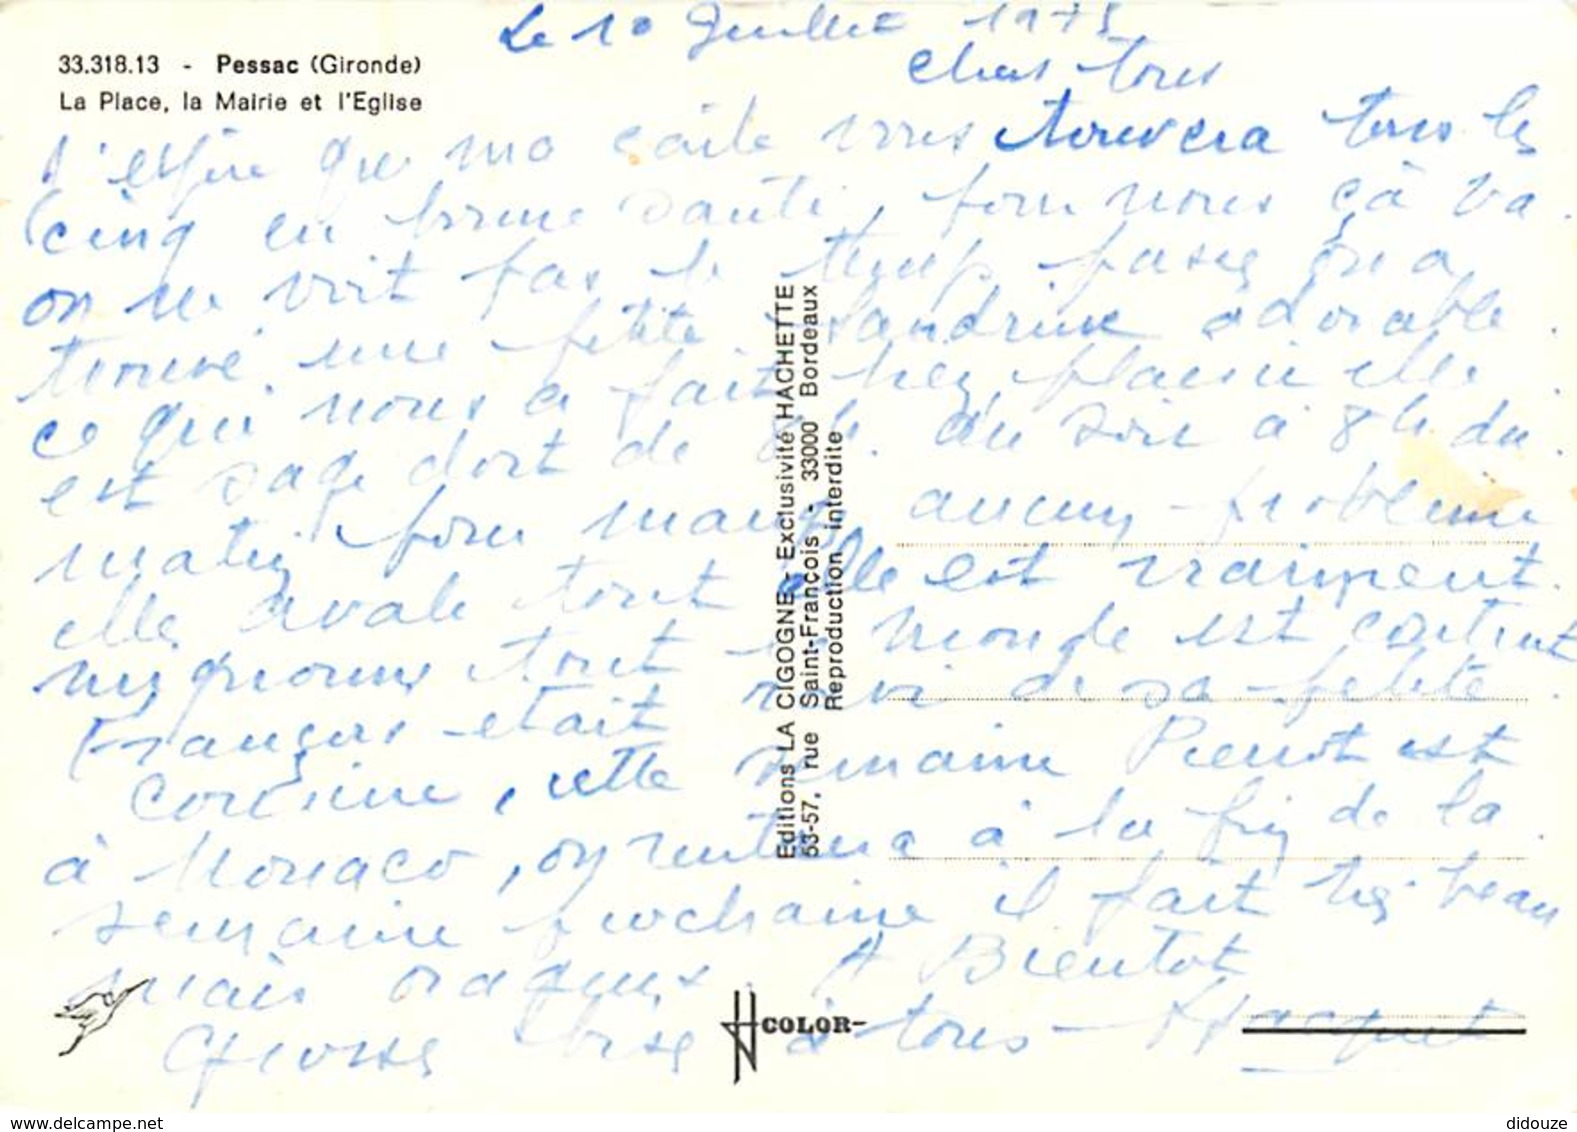 Le 10 Juillet 1975
33.318.13 - Pessac (Gironde)
La Place, la Mairie et l'Eglise
Chers tous
J'espère que ma carte vous trouvera tous les
cinq en bonne santé, pour nous çà va.
on ne voit pas le temps passer on a
trouvé une petite Sandrine adorable.
ce qui nous a fait très plaisir elle
est sage dort de 8h. du soir à 8h du
matin pour manger aucun problème
elle avale tout elle est vraiment
mignonne tout le monde est content
François était ravi de sa petite
cousine, cette semaine Pierrot est
à Monaco, on rentrera à la fin de la
semaine prochaine il fait très beau
mais orageux. A Bientot
Grosse bise à tous
Editions LA CIGOGNE - Exclusivité HACHETTE
53-57, rue Saint-François - 33000 Bordeaux
Reproduction interdite
COLOR
delcampe.net
didouze